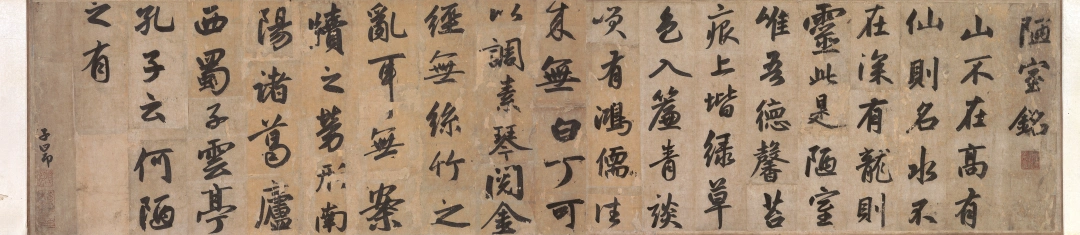 陋室銘
山不在高有
仙則名水不
在深有龍則
靈此是陋室
唯吾德馨苔
痕上堦緑草
色入簾青談
笑有鴻儒往
来無白丁可
以調素琴閱金
經無絲竹之
亂耳無案
牘之勞形南
陽諸葛廬
西蜀子雲亭
孔子云何陋
之有
子昂